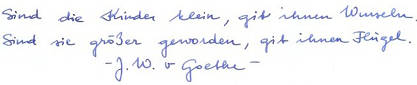 Sind die Kinder klein, gib ihnen Wurzeln.
Sind sie größer geworden, gib ihnen Flügel.
- J. W. v Goethe -